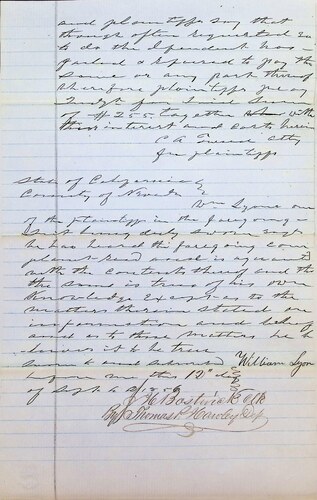 and plaintiffs say that
though often requested so
to do the defendant has
failed & refused to pay the
same or any part thereof
therefore plaintiffs pray
Judgt for said sum
of $255. together with
interest and costs herein
C A
for plaintiffs
State of California
County of Nevada
Wm Lyon one
of the Plaintiffs in the foregoing
Suit being duly sworn says
he has heard the foregoing com
plaint read and is acquainted
with the contents thereof and that
the same is true of his own
Knowledge Except as to the
matters therein stated on
information and belief
and as to those matters he be
lieves it to be true
Sworn to and subscribed William Lyon
before me this 12" day
of Sept
Bostwick Clk
By Thomas P Hawley Dep